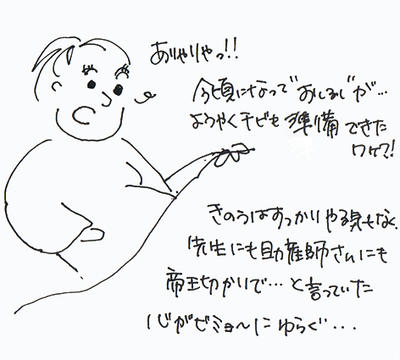 ありゃりゃっ!!
今頃になって"おしるし"が…
ようやくチビも準備できた
ワケ?!
きのうはすっかりやる気もなく、
先生にも助産師さんにも
帝王切かいで…と言っていた
心がビミョ〜にゆらぐ・・・